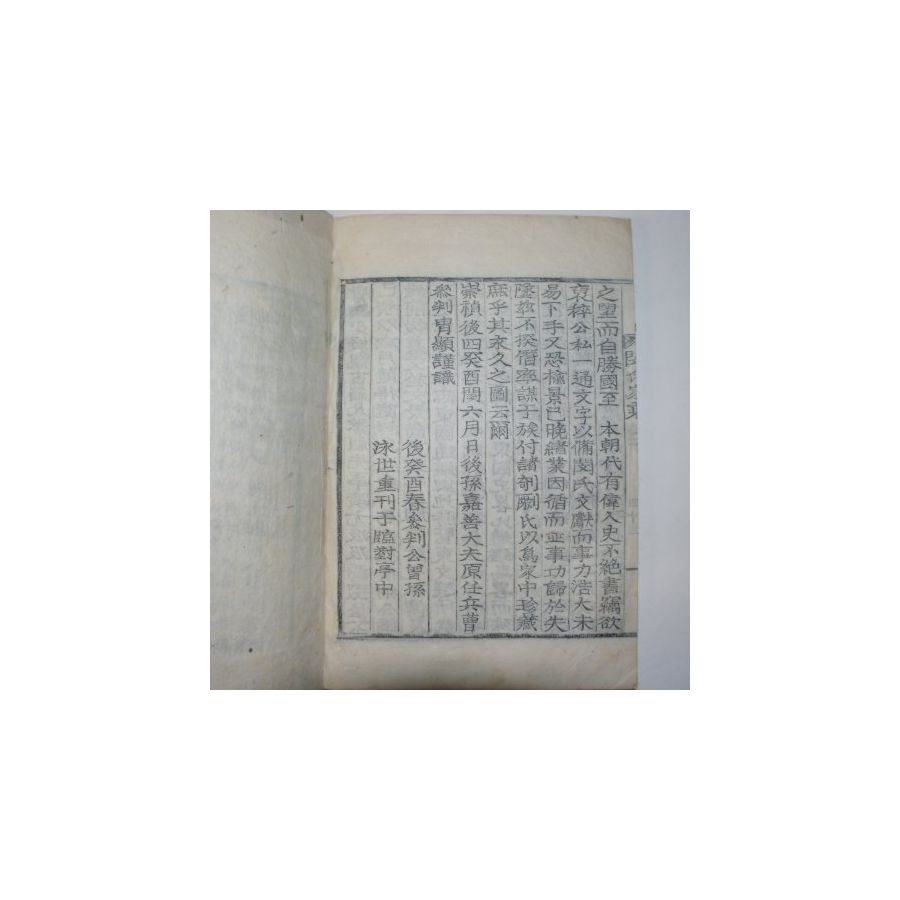 之望而自勝國至 本朝代有偉人史不絶書竊欲
裒稡公私一通文字以備安氏文獻而事力浩大未
易下手又恐楡景已晩緖業因循而並事功歸於失
墜玆不揆僭率謀于族付諸剞劂氏以爲家中珍藏
庶乎其永久之圖云爾
崇禎後四癸酉閏六月日後孫嘉善大夫原任兵曹
參判胄顯謹識
後癸酉春參判公曾孫
泳世重刊于臨對亭中